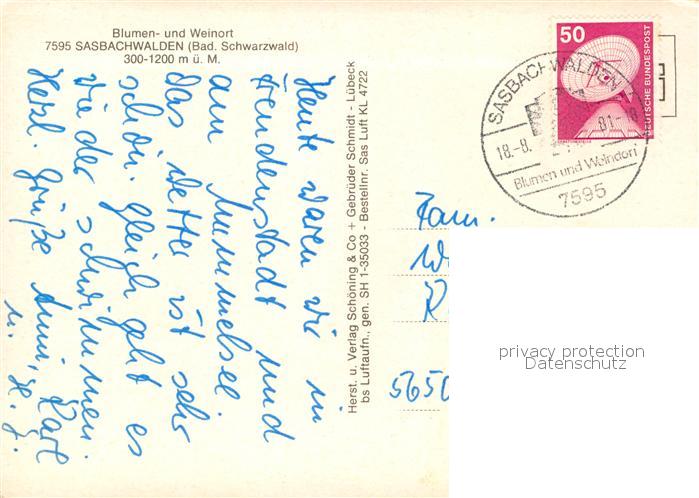 Blumen- und Weinort
7595 SASBACHWALDEN (Bad. Schwarzwald)
300-1200 m ü. M.
Heute waren wir in
Freudenstadt und
am Mummelsee.
das Wetter ist sehr
schön. Gleich geht es
wieder schwimmen
Herzl. Grüße Anni, Karl
u.
Herst. u. Verlag Schöning & Co + Gebrüder Schmidt - Lübeck
bs Luftaufn., gen. SH 1-35033 - Bestellnr. Sas Luft KL 4722
50
DEUTSCHE BUNDESPOST
SASBACHWALDEN
18.-8.
Blumen und Weindorf
7595
Fam.
5650
privacy protection
Datenschutz